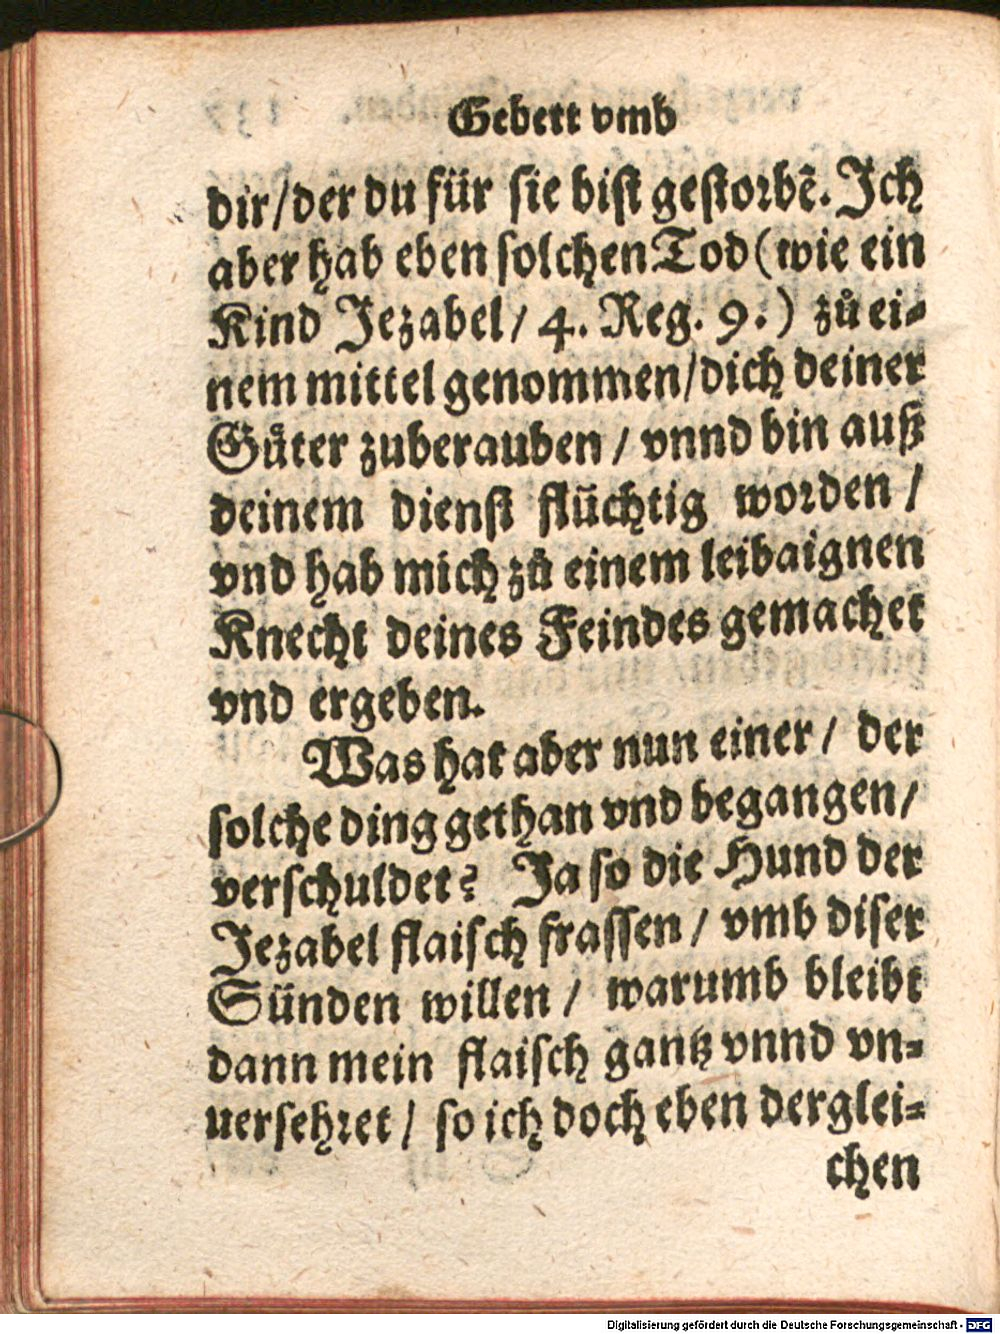 Gebett vmb
dir/der du für sie bist gestorbẽ. Ich
aber hab eben solchen Tod (wie ein
Kind Jezabel/ 4. Reg. 9.) zů ei-
nem mittel genommen/dich deiner
Gůter zuberauben / vnnd bin auß
deinem dienst flüchtig worden /
vnd hab mich zů einem leibaignen
Knecht deines Feindes gemachet
vnd ergeben.
Was hat aber nun einer / der
solche ding gethan vnd begangen/
verschuldet? Ja so die Hund der
Jezabel flaisch frassen / vmb diser
Sünden willen / warumb bleibt
dann mein flaisch gantz vnnd vn-
uersehret / so ich doch eben derglei-
chen
Digitalisierung gefördert durch die Deutsche Forschungsgemeinschaft - DFG